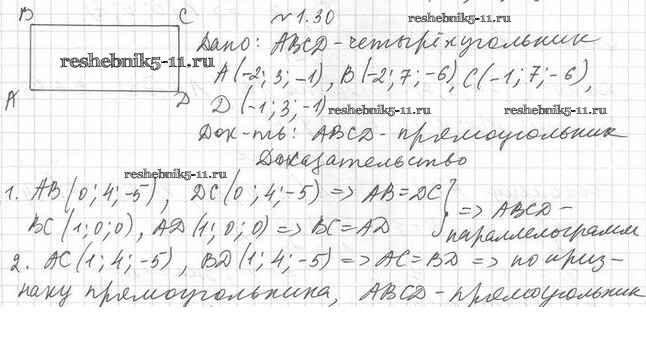 B C № 1.30 reshebnik5-11.ru
Дано: ABCD - четырёхугольник
reshebnik5-11.ru
A(-2; 3; -1), B(-2; 7; -6), C(-1; 7; -6),
A D D(-1; 3; -1) reshebnik5-11.ru reshebnik5-11.ru
Док-ть: ABCD - прямоугольник
Доказательство
reshebnik5-11.ru
1. AB(0; 4; -5), DC(0; 4; -5) => AB = DC } => ABCD -
BC(1; 0; 0), AD(1; 0; 0) => BC = AD параллелограмм
2. AC(1; 4; -5), BD(1; 4; -5) => AC = BD => по приз-
наку прямоугольника, ABCD - прямоугольник